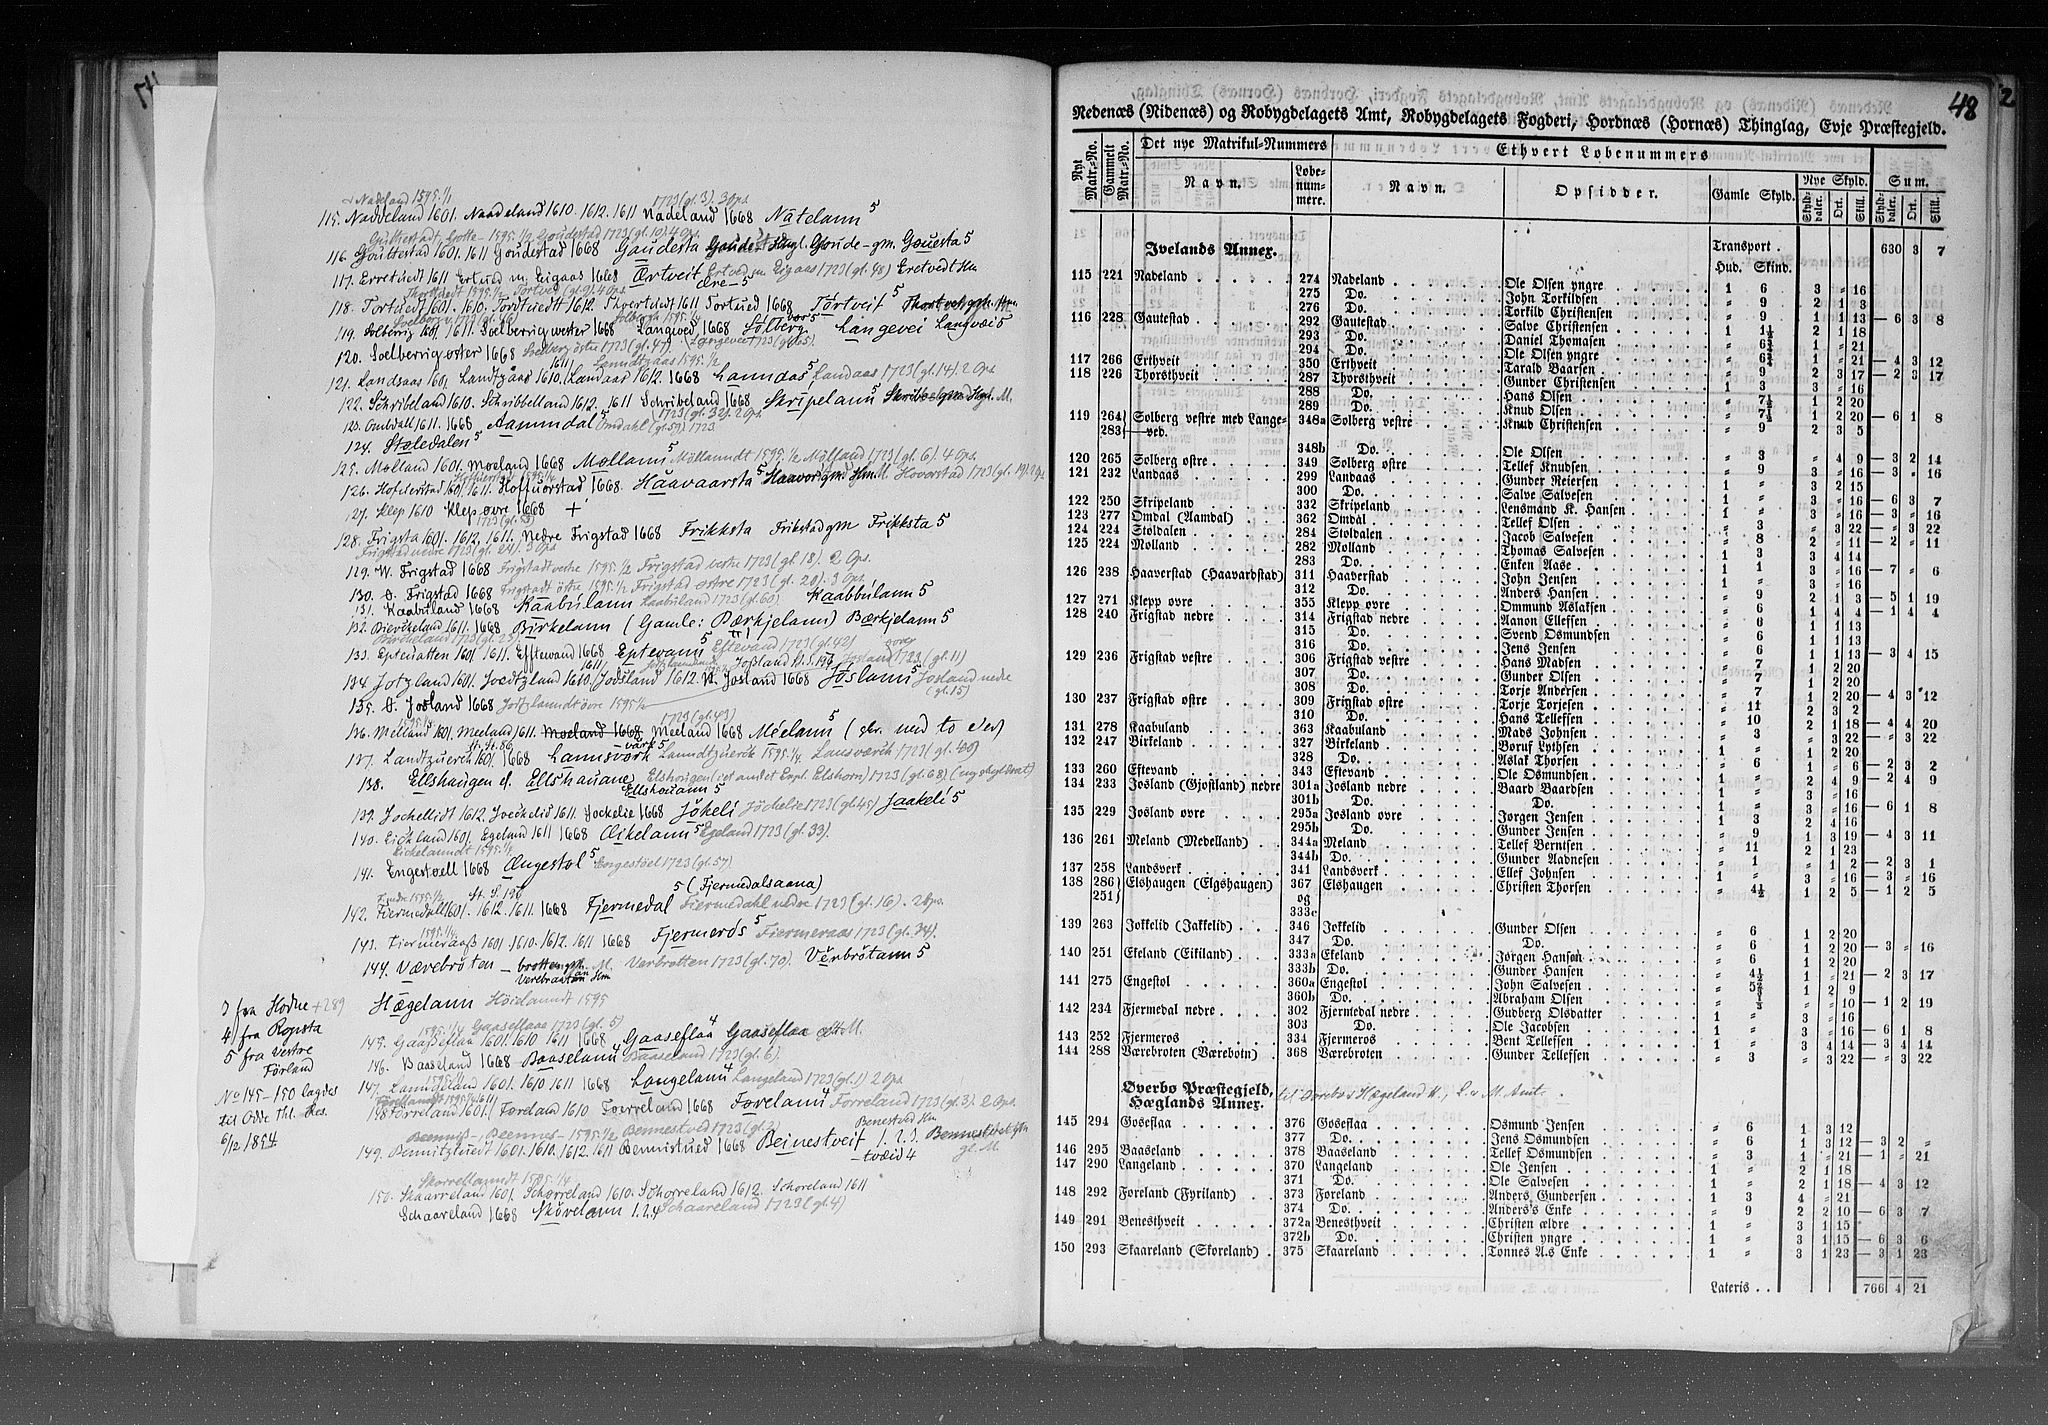 & Nadeland 1595.1/1
1723 (gl. 3). 3 Ops.
115. Naddeland 1601. Naadeland 1610. 1612. 1611 Nadeland 1668 Nátelann 5
116. Gouttestad 1601. 1611 Goudestad 1668 Gaudesta Goude-gm. Gouesta 5
117. Erretuedt 1611 Ertued m. Eigaas 1668 Ærtveit Ertved m. Eigaas 1723 (gl. 48) Eretvedt Hm
Ære-5
118. Tortued 1601. 1610. Tordtuedt 1612. Thvertuedt 1611 Tortued 1668 Tortveit 5
119. Solberig 1601. 1611. Soelberrig wester 1668 Langved 1668 Solberg Langevei Langvæi 5
120. Soelberrig oster 1668 Soelberg östre 1723 (gl. 47)
121. Landsaas 1601 Landtzaas 1610. Landaas 1612. 1668 Lanndas 5 Landaas 1723 (gl. 14). 2 Ops
122. Schribeland 1610. Schribbelland 1612. 1611 Schribeland 1668 Skripelann 5
123. Ombdall 1611. 1668 Aamndal 5 Omdahl (gl. 59) 1723
124. Stoledalen 5
125. Molland 1601. Moeland 1668 Mollann 5 Möllanndt 1595. 1/2 Molland 1723 (gl. 6). 4 Ops
126. Hofuerstad 1601. 1611. Hoffuorstad 1668. Haavaarsta 5 Hovorstad 1723 (gl. 19). 2 Ops
127. Klep 1610 Klep övre 1668 +
128. Frigsta 1601. 1612. 1611. Nedre Frigstad 1668 Frikksta Frikstad gm Frikksta 5
Frigstad nedre 1723 (gl. 24). 3 Ops
129. W. Frigstad 1668 Frigstadt vestre 1595. 1/2 Frigstad vestre 1723 (gl. 18). 2 Ops.
130. O. Frigstad 1668 Frigstadt östre 1595. 1/2 Frigstad østre 1723 (gl. 20). 3 Ops
131. Kaabuland 1668 Kaabulann Kaabuland 1723 (gl. 60) Kaabbulann 5
132. Bierckeland 1611. 1668 Birkelann (Gamle: Bærkjelann) Bærkjelann 5
Birckeland 1723 (gl. 25)
133. Eptevatten 1601. 1611. Efftewand 1668 Eptevann 5 Eftevand 1723 (gl. 42)
134 Jotzland 1601. Joedtzland 1610. Jodsland 1612. N. Josland 1668 Joslann 5 Josland nedre
(gl. 15)
135. O. Josland 1668 Jotzlanndt övre 1595 1/2
1723 (gl. 43)
136. Meeland 1601. Meeland 1611. Moeland 1668 Meeland 1668 Méelann 5 (skr. med to e'er)
137. Landtzuerch 1601. 1668 Lannsvörk Lanndtzuerck 1595. 1/4 Lansværck 1723 (gl. 40)
138. Ellshaugen el. Ellshauane Elshougen (iet andet Expl. Elshorn) 1723 (gl. 68) (ny skyldsat)
Ellshouann 5
139. Jochellidt 1612. Joeckelid 1611. Jockelie 1668 Jökeli Jöchelie 1723 (gl. 45) Jaakeli 5
140. Eickeland 1601. Egeland 1611 1668 Œikelann 5 Egeland 1723 (gl. 33).
Eickelanndt 1595. 1/4
141. Engestoell 1668 Ængestol 5 Engestöel 1723 (gl. 57)
5 (Fjermedalsaana)
142. Fiermedall 1601. 1612. 1611. 1668 Fjermedal Fiermedahl nedre 1723 (gl. 16). 2 Ops.
143. Fiermeraaß 1601. 1610. 1612. 1611 1668 Fjermeros 5 Fiermeraas 1723 (gl. 34).
144. Værebröten – M. Verbrotten 1723 (gl. 70). Verbrötann 5
3 fra Hodne +289
4 fra Ropsta
5 fra Vestre
Førland
Hægelann Höielanndt 1595
1595. 1/4 Gaaseflaae 1723 (gl. 5)
145. Gaaßeflaa 1601. 1610 1611 1668 Gaaseflaa 4 Gaaseflaa M.
146. Baaseland 1668 Baaselann 4 Baaseland 1723 (gl. 6).
No 145–150 lagdes
til Odde Thl. Res.
6/12 1854
147. Langeland 1601. 1610 1611 1668 Langelann 4 Langeland 1723 (gl. 1) 2 Ops
148 Forreland 1601. Foreland 1610 Foerreland 1668 Forelann 4 Forreland 1723 (gl. 3). 2 Ops.
149. Bennitztuedt 1601. 1610. 1612. 1611 Bennistued 1668 Beinestveit 1. 2. 3.
-tvæid 4
Skorrellanndt 1595. 1/4
150. Skaarreland 1601. Schorreland 1610. Schorreland 1612. Schoreland 1611
Schaareland 1668 Skörelann 1. 2. 4 Schaareland 1723 (gl. 4)
48
Nedenæs (Nidenæs) og Robygdelagets Amt, Robygdelagets Fogderi, Hordnæs (Hornæs) Thinglag, Evje Præstegjeld.
Nyt Matr.-No. Gammelt Matr.-No. Det nye Matrikul-Nummers Ethvert Løbenummers
Navn. Løbenummere. Navn. Opsidder. Gamle Skyld. Nye Skyld. Sum.
Skylddaler. Ort. Skill. Skylddaler. Ort. Skill.
Ivelands Annex. Transport . 630 3 7
Hud. Skind.
115 221 Nadeland 274 Nadeland Ole Olsen yngre 1 6 3 " 16
275 Do. John Torkildsen " 9 2 1 3
276 Do. Torkild Christensen " 9 1 1 13 — 6 3 8
116 228 Gautestad 292 Gautestad Salve Christensen 1 1½ 2 1 18
293 Do. Daniel Thomasen " 6¾ 1 " 21
294 Do. Ole Olsen yngre " 6¾ 1 " 21 — 4 3 12
117 266 Erthveit 350 Erthveit Tarald Baarsen " 9 2 3 17 — 2 3 17
118 226 Thorsthveit 287 Thorsthveit Gunder Christensen 1 3 3 " 16
288 Do. Hans Olsen " 7½ 1 2 20
289 Do. Knud Olsen " 7½ 1 2 20 — 6 1 8
119 264 Solberg vestre med Lange- 348a Solberg vestre Knud Christensen " 9 2 3 5
283 ved.
348b Do. Ole Olsen " 3 " 4 9 — 3 2 14
120 265 Solberg østre 349 Solberg østre Tellef Knudsen " 9 3 " 16 — 3 " 16
121 232 Landaas 299 Landaas Gunder Reiersen 1 " 3 2 15
300 Do. Salve Salvesen 1 " 3 " 16 — 6 3 7
122 250 Skripeland 332 Skripeland Lensmand K. Hansen 1 " 3 " 16 — 3 " 16
123 277 Omdal (Aamdal) 362 Omdal Tellef Olsen " 3 " 3 22 — " 3 22
124 224 Stoldalen 284 Stoldalen Jacob Salvesen " 8 2 " 11 — 2 " 11
125 224 Molland 282 Molland Thomas Salvesen 1 3 3 4 14
283 Do. Enken Aase 1 1 3 " 16 — 7 " 6
126 238 Haaverstad (Haavardstad) 311 Haaverstad John Jensen 1 " 3 " 16
312 Do. Anders Hansen " 9 2 1 3 — 5 1 19
127 271 Klepp øvre 355 Klepp øvre Ommund Aslaksen " 6 1 4 4 — 1 4 4
128 240 Frigstad nedre 314 Frigstad nedre Aanon Ellefsen " 6 1 1 13
315 Do. Svend Osmundsen " 6 1 1 13
316 Do. Jens Jensen " 6 1 1 13 — 3 4 15
129 236 Frigstad vestre 306 Frigstad vestre Hans Madsen " 7 1 2 20
307 Do. Gunder Olsen " 7 1 2 20
308 Do. Torje Andersen " 7 1 2 20 — 4 3 12
130 237 Frigstad østre 309 Frigstad østre Torje Torjesen " 11 2 3 2
310 Do. Hans Tellefsen " 10 2 1 18 — 4 4 20
131 278 Kaabuland 363 Kaabuland Mads Johnsen " 3 " 3 22 — " 3 22
132 247 Birkeland 327 Birkeland Boruf Lythsen 1 " 2 " 20
328 Do. Aslak Thorsen " 6 1 " 6 — 2 3 2
133 260 Eftevand 343 Eftevand Ole Osmundsen 1 " 2 4 9 — 2 4 9
134 233 Josland (Gjosland) nedre 301a Josland nedre Baard Baardsen 1 " 3 " 16
301b Do. Do. 1 " 3 " 16 — 6 1 8
135 229 Josland øvre 295a Josland øvre Jørgen Jensen 1 3 2 4 16
295b Do. Gunder Jensen " 9 1 3 19 — 4 3 11
136 261 Meland (Medelland) 344a Meland Tellef Berntsen " 11 2 1 23
344b Do. Gunder Aadnesen " 1 " 1 2 — 2 3 1
137 258 Landsverk 341 Landsverk Ellef Johnsen 1 " 3 " 16 — 3 " 16
138 286 Elshaugen (Elgshaugen) 367 Elshaugen Christen Thorsen " 4½ 1 2 5 — 1 2 5
251 og
333c
139 263 Jokkelid (Jakkelid) 346 Jokkelid Gunder Olsen " 6 1 2 20
347 Do. Do. " 6 1 2 20 — 3 " 16
140 251 Ekeland (Eikiland) 333a Ekeland Jørgen Hansen " 6 1 2 20
333b Do. Gunder Hansen " 4½ 1 " 21 — 2 3 17
141 275 Engestol 360a Engestol John Salvesen " 1 2 9
360b Do. Abraham Olsen " " " 10 — 1 2 19
142 234 Fjermedal nedre 302 Fjermedal nedre Gudberg Olsdatter 1 " 3 " 16
303 Do. Ole Jacobsen 1 " 3 " 16 — 6 1 8
143 252 Fjermeros 334 Fjermeros Bent Tellefsen 1 " 3 4 14 — 3 4 14
144 288 Værebroten (Værebotn) 368 Værebroten Gunder Tellefsen " 3 " 3 22 — " 3 22
Øverbø Præstegjeld,
Hæglands Annex.
145 294 Goseflaa 376 Goseflaa Osmund Jensen " 6 1 3 12
377 Do. Jens Osmundsen " 6 1 3 12 — 3 2 "
146 295 Baaseland 378 Baaseland Tellef Osmundsen " 3 1 " 21 — 1 " 21
147 290 Langeland 370 Langeland Ole Jensen 1 " 2 1 18
371 Do. Ole Salvesen 1 " 2 1 18 — 4 3 12
148 292 Foreland (Fyriland) 373 Foreland Anders Gundersen 1 3 4 " 21
374 Do. Anders's Enke " 9 2 2 10 — 6 3 7
149 291 Benesthveit 372a Benesthveit Christen ældre 1 " 3 1 15
372b Do. Christen yngre 1 " 3 1 15 — 6 3 6
150 293 Skaareland (Skoreland) 375 Skaareland Tonnes A.s Enke 1 " 3 1 23 — 3 1 23
Lateris . . 766 4 21